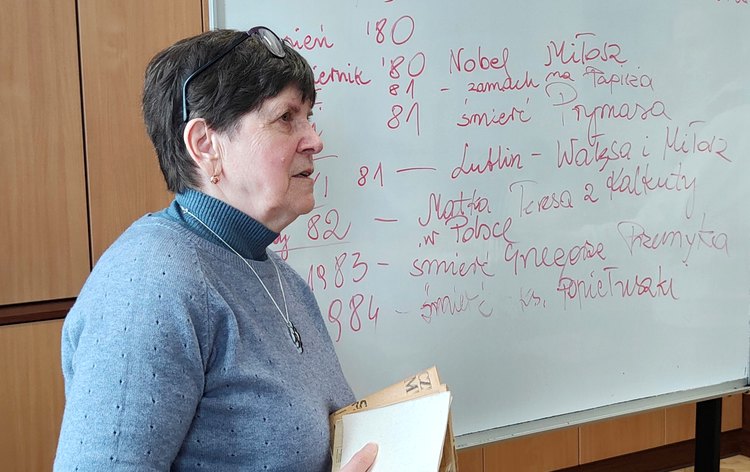 pień '80
iernik '80 Nobel Miłosz
81 - zamach na Papieża
81 śmierć Prymasa
81 — Lublin - Wałęsa i Miłosz
82 - Matka Teresa z Kalkuty
w Polsce
1983 - śmierć Grzegorza Przemyka
984 - śmierć ks. Popiełuszki
CZ
M